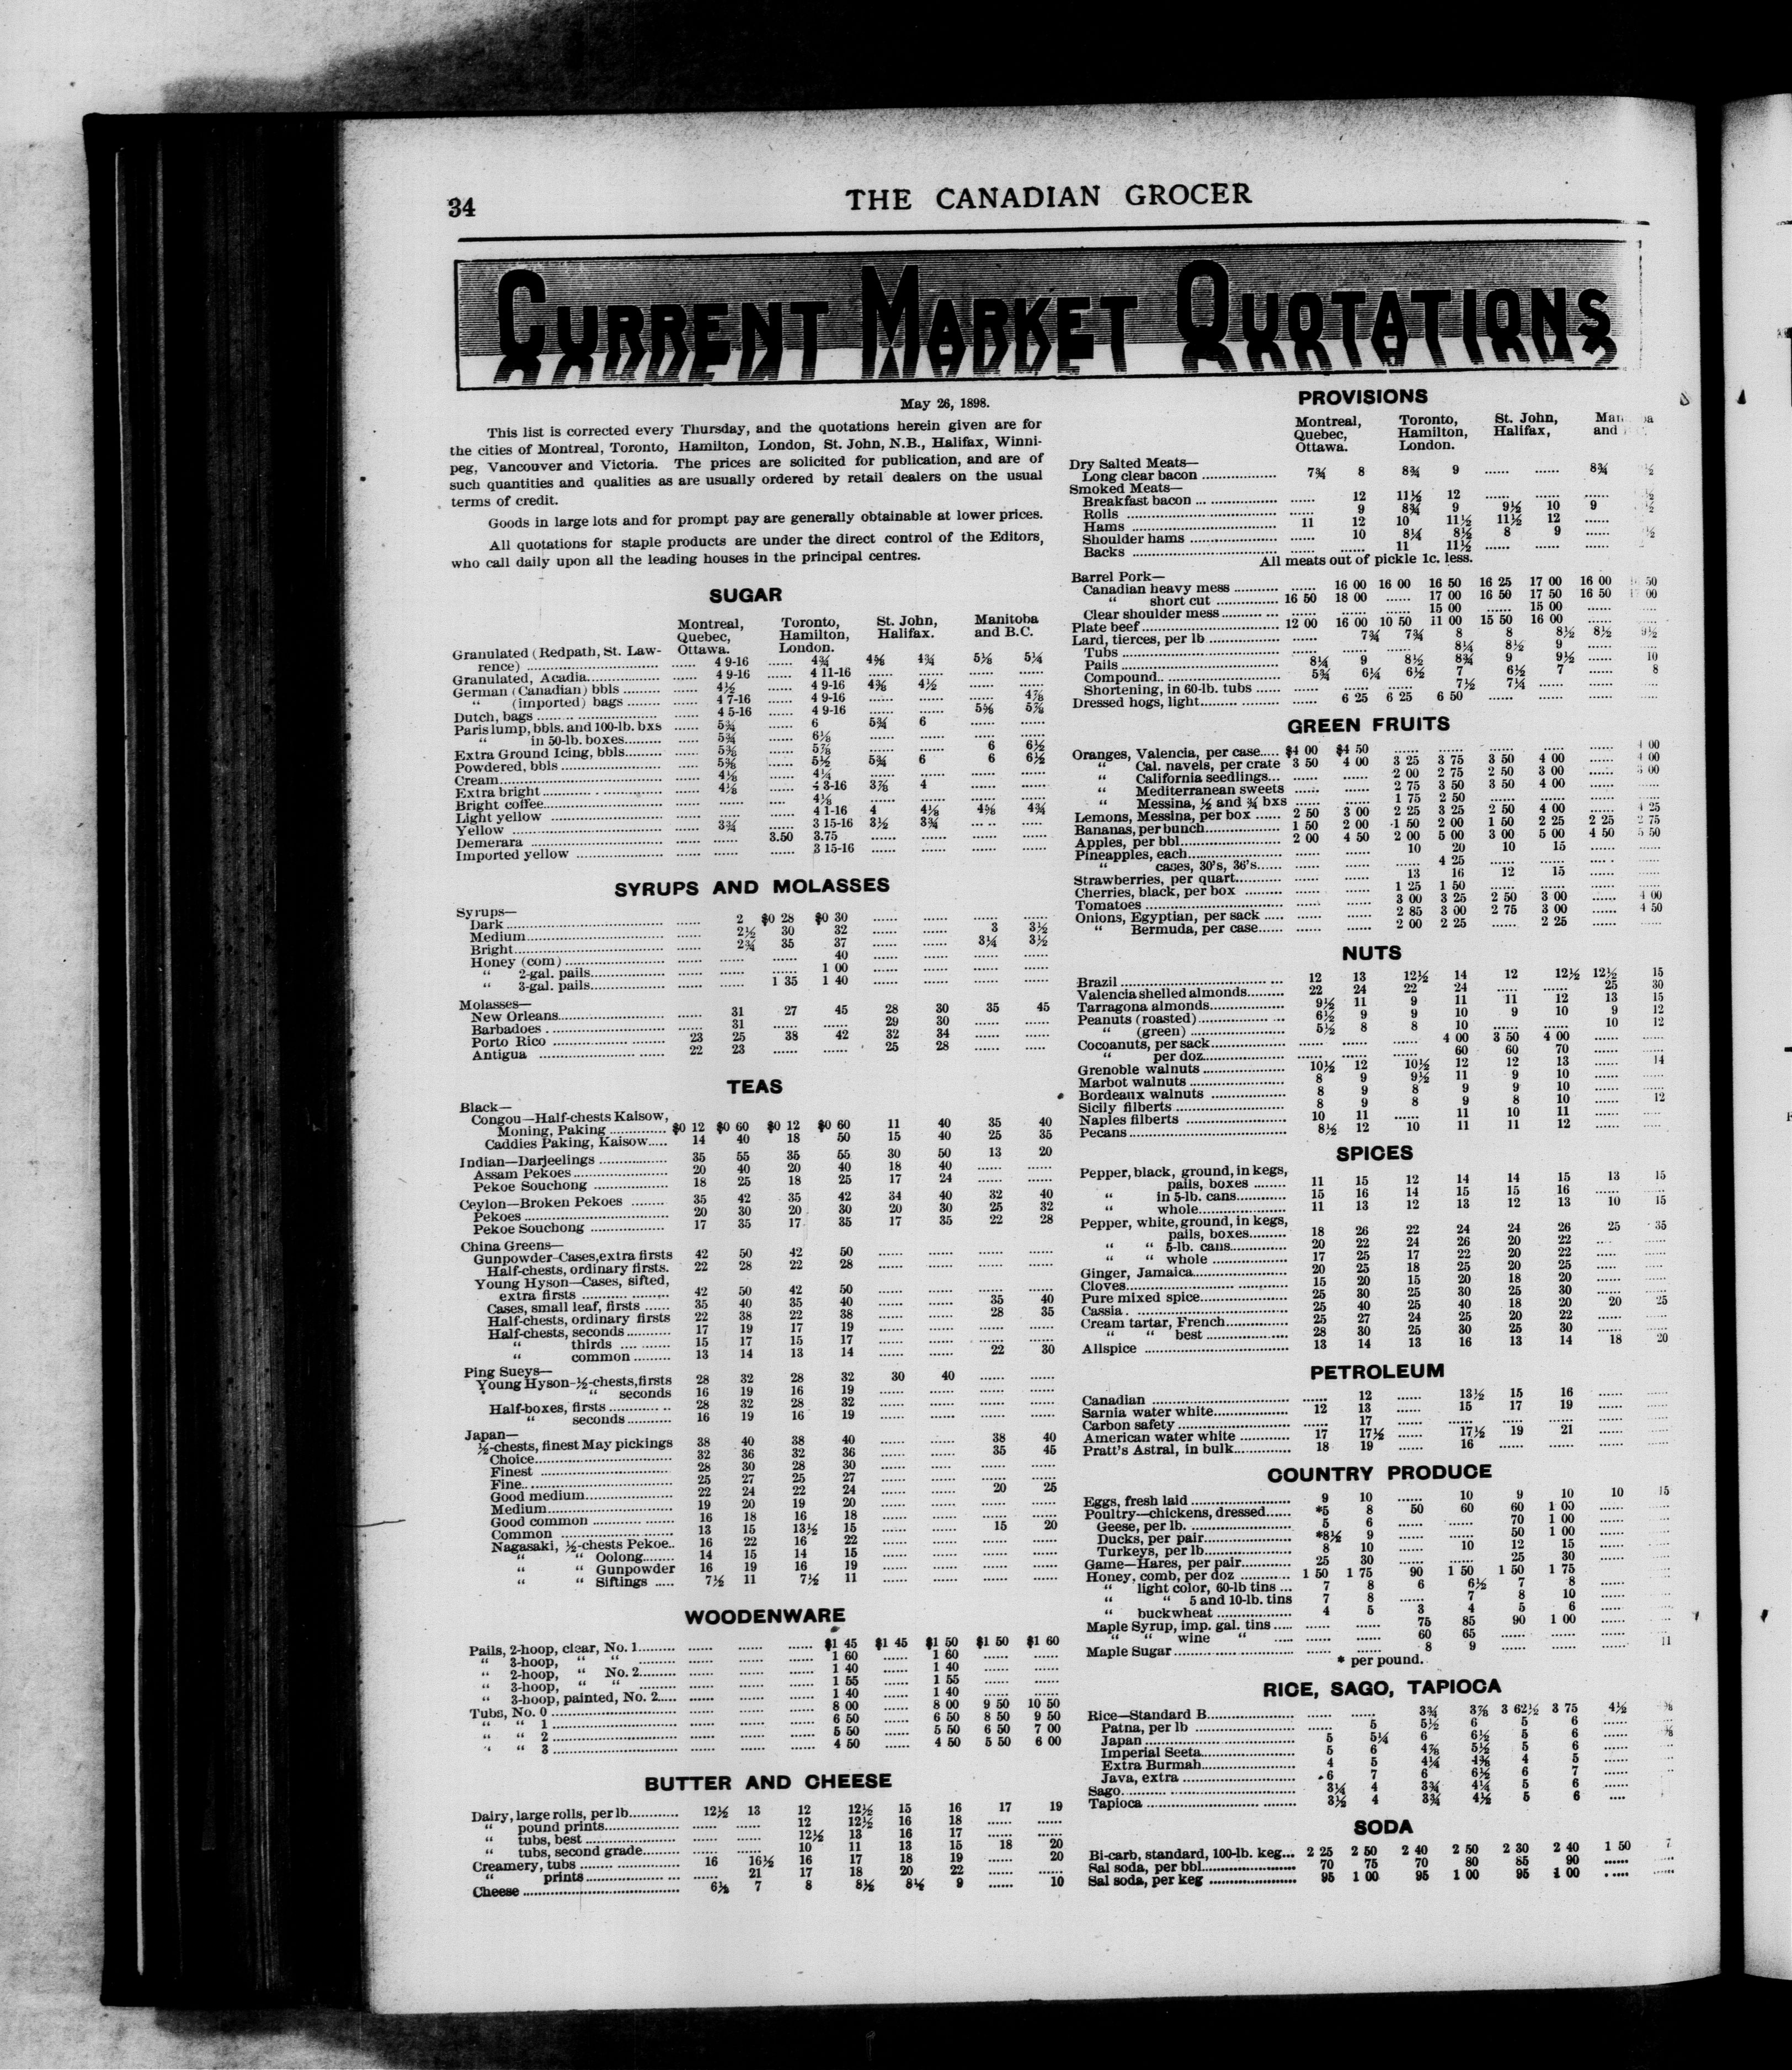 34
THE CANADIAN GROCER
CURRENT MARKET QUOTATIONS
May 26, 1898.
This list is corrected every Thursday, and the quotations herein given are for
the cities of Montreal, Toronto, Hamilton, London, St. John, N.B., Halifax, Winni-
peg, Vancouver and Victoria. The prices are solicited for publication, and are of
such quantities and qualities as are usually ordered by retail dealers on the usual
terms of credit.
Goods in large lots and for prompt pay are generally obtainable at lower prices.
All quotations for staple products are under the direct control of the Editors,
who call daily upon all the leading houses in the principal centres.
SUGAR
Montreal, Toronto, St. John, Manitoba
Quebec, Hamilton, Halifax. and B.C.
Ottawa. London.
Granulated (Redpath, St. Law-
rence) ...... 4 9-16 ...... 4¾ 4⅝ 4¾ 5⅛ 5¼
Granulated, Acadia ...... 4 9-16 ...... 4 11-16 ...... ...... ...... ......
German (Canadian) bbls ...... 4½ ...... 4 9-16 4⅜ 4½ ...... ......
“ (imported) bags ...... 4 7-16 ...... 4 9-16 ...... ...... ...... 4⅞
Dutch, bags ...... 4 5-16 ...... 4 9-16 ...... ...... 5⅝ 5⅞
Paris lump, bbls. and 100-lb. bxs ...... 5¾ ...... 6 5¾ 6 ...... ......
“ in 50-lb. boxes ...... 5¾ ...... 6⅛ ...... ...... ...... ......
Extra Ground Icing, bbls ...... 5⅝ ...... 5⅞ ...... ...... 6 6½
Powdered, bbls ...... 5⅜ ...... 5½ 5¾ 6 6 6½
Cream ...... 4⅛ ...... 4¼ ...... ...... ...... ......
Extra bright ...... 4⅛ ...... 4 3-16 3⅞ 4 ...... ......
Bright coffee ...... .... ...... 4⅛ ...... ...... ...... ......
Light yellow ...... ...... ...... 4 1-16 4 4⅛ 4⅝ 4¾
Yellow ...... 3¾ ...... 3 15-16 3½ 3¾ ...... ......
Demerara ...... ...... 3.50 3.75 ...... ...... ...... ......
Imported yellow ...... ...... ...... 3 15-16 ...... ...... ...... ......
SYRUPS AND MOLASSES
Syrups—
Dark ...... 2 $0 28 $0 30 ...... ...... ...... ......
Medium ...... 2½ 30 32 ...... ...... 3 3½
Bright ...... 2¾ 35 37 ...... ...... 3¼ 3½
Honey (com) ...... ...... ...... 40 ...... ...... ...... ......
“ 2-gal. pails ...... ...... ...... 1 00 ...... ...... ...... ......
“ 3-gal. pails ...... ...... 1 35 1 40 ...... ...... ...... ......
Molasses—
New Orleans ...... 31 27 45 28 30 35 45
Barbadoes ...... 31 ...... ...... 29 30 ...... ......
Porto Rico 23 25 38 42 32 34 ...... ......
Antigua 22 23 ...... ...... 25 28 ...... ......
TEAS
Black—
Congou—Half-chests Kaisow,
Moning, Paking $0 12 $0 60 $0 12 $0 60 11 40 35 40
Caddies Paking, Kaisow 14 40 18 50 15 40 25 35
Indian—Darjeelings 35 55 35 55 30 50 13 20
Assam Pekoes 20 40 20 40 18 40 ...... ......
Pekoe Souchong 18 25 18 25 17 24 ...... ......
Ceylon—Broken Pekoes 35 42 35 42 34 40 32 40
Pekoes 20 30 20 30 20 30 25 32
Pekoe Souchong 17 35 17 35 17 35 22 28
China Greens—
Gunpowder—Cases, extra firsts 42 50 42 50 ...... ...... ...... ......
Half-chests, ordinary firsts. 22 28 22 28 ...... ...... ...... ......
Young Hyson—Cases, sifted,
extra firsts 42 50 42 50 ...... ...... ...... ......
Cases, small leaf, firsts 35 40 35 40 ...... ...... 35 40
Half-chests, ordinary firsts 22 38 22 38 ...... ...... 28 35
Half-chests, seconds 17 19 17 19 ...... ...... ...... ......
“ thirds 15 17 15 17 ...... ...... ...... ......
“ common 13 14 13 14 ...... ...... 22 30
Ping Sueys—
Young Hyson-½-chests, firsts 28 32 28 32 30 40 ...... ......
“ seconds 16 19 16 19 ...... ...... ...... ......
Half-boxes, firsts 28 32 28 32 ...... ...... ...... ......
“ seconds 16 19 16 19 ...... ...... ...... ......
Japan—
½-chests, finest May pickings 38 40 38 40 ...... ...... 38 40
Choice 32 36 32 36 ...... ...... 35 45
Finest 28 30 28 30 ...... ...... ...... ......
Fine 25 27 25 27 ...... ...... ...... ......
Good medium 22 24 22 24 ...... ...... 20 25
Medium 19 20 19 20 ...... ...... ...... ......
Good common 16 18 16 18 ...... ...... ...... ......
Common 13 15 13½ 15 ...... ...... 15 20
Nagasaki, ½-chests Pekoe 16 22 16 22 ...... ...... ...... ......
“ “ Oolong 14 15 14 15 ...... ...... ...... ......
“ “ Gunpowder 16 19 16 19 ...... ...... ...... ......
“ “ Siftings 7½ 11 7½ 11 ...... ...... ...... ......
WOODENWARE
Pails, 2-hoop, clear, No. 1 ...... ...... ...... $1 45 $1 45 $1 50 $1 50 $1 60
“ 3-hoop, “ “ ...... ...... ...... 1 60 ...... 1 60 ...... ......
“ 2-hoop, “ No. 2 ...... ...... ...... 1 40 ...... 1 40 ...... ......
“ 3-hoop, “ “ ...... ...... ...... 1 55 ...... 1 55 ...... ......
“ 3-hoop, painted, No. 2 ...... ...... ...... 1 40 ...... 1 40 ...... ......
Tubs, No. 0 ...... ...... ...... 8 00 ...... 8 00 9 50 10 50
“ “ 1 ...... ...... ...... 6 50 ...... 6 50 8 50 9 50
“ “ 2 ...... ...... ...... 5 50 ...... 5 50 6 50 7 00
“ “ 3 ...... ...... ...... 4 50 ...... 4 50 5 50 6 00
BUTTER AND CHEESE
Dairy, large rolls, per lb 12½ 13 12 12½ 15 16 17 19
“ pound prints ...... ...... 12 12½ 16 18 ...... ......
“ tubs, best ...... ...... 12½ 13 16 17 ...... ......
“ tubs, second grade ...... ...... 10 11 13 15 18 20
Creamery, tubs 16 16½ 16 17 18 19 ...... 20
“ prints ...... 21 17 18 20 22 ...... ......
Cheese 6½ 7 8 8½ 8½ 9 ...... 10
PROVISIONS
Montreal, Toronto, St. John,
Quebec, Hamilton, Halifax, and
Ottawa. London.
Dry Salted Meats—
Long clear bacon 7¾ 8 8¾ 9 ...... ...... 8¾
Smoked Meats—
Breakfast bacon ...... 12 11½ 12 ...... ...... ......
Rolls ...... 9 8¾ 9 9½ 10 9
Hams 11 12 10 11½ 11½ 12 ......
Shoulder hams ...... 10 8¼ 8½ 8 9 ......
Backs ...... ...... 11 11½ ...... ...... ......
All meats out of pickle 1c. less.
Barrel Pork—
Canadian heavy mess ...... 16 00 16 00 16 50 16 25 17 00 16 00
“ short cut 16 50 18 00 ...... 17 00 16 50 17 50 16 50
Clear shoulder mess ...... ...... ...... 15 00 ...... 15 00 ......
Plate beef 12 00 16 00 10 50 11 00 15 50 16 00 ......
Lard, tierces, per lb ...... 7¾ 7¾ 8 8 8½ 8½ 9½
Tubs ...... ...... ...... 8¼ 8½ 9 ......
Pails 8¼ 9 8½ 8¾ 9 9½ ...... 10
Compound 5¾ 6¼ 6½ 7 6½ 7 ...... 8
Shortening, in 60-lb. tubs ...... ...... ...... 7½ 7¼ ...... ......
Dressed hogs, light ...... 6 25 6 25 6 50 ...... ...... ......
GREEN FRUITS
Oranges, Valencia, per case $4 00 $4 50 ...... ...... ...... ...... ...... 4 00
“ Cal. navels, per crate 3 50 4 00 3 25 3 75 3 50 4 00 ...... 4 00
“ California seedlings ...... ...... 2 00 2 75 2 50 3 00 ...... 3 00
“ Mediterranean sweets ...... ...... 2 75 3 50 3 50 4 00 ......
“ Messina, ½ and ¾ bxs ...... ...... 1 75 2 50 ...... ...... ......
Lemons, Messina, per box 2 50 3 00 2 25 3 25 2 50 4 00 ...... 4 25
Bananas, per bunch 1 50 2 00 1 50 2 00 1 50 2 25 2 25 2 75
Apples, per bbl 2 00 4 50 2 00 5 00 3 00 5 00 4 50 5 50
Pineapples, each ...... ...... 10 20 10 15 ......
“ cases, 30's, 36's ...... ...... ...... 4 25 ...... ...... ......
Strawberries, per quart ...... ...... 13 16 12 15 ......
Cherries, black, per box ...... ...... 1 25 1 50 ...... ...... ......
Tomatoes ...... ...... 3 00 3 25 2 50 3 00 ...... 4 00
Onions, Egyptian, per sack ...... ...... 2 85 3 00 2 75 3 00 ...... 4 50
“ Bermuda, per case ...... ...... 2 00 2 25 ...... 2 25 ......
NUTS
Brazil 12 13 12½ 14 12 12½ 12½ 15
Valencia shelled almonds 22 24 22 24 ...... ...... 25 30
Tarragona almonds 9½ 11 9 11 11 12 13 15
Peanuts (roasted) 6½ 9 9 10 9 10 9 12
“ (green) 5½ 8 8 10 ...... ...... 10 12
Cocoanuts, per sack ...... ...... ...... 4 00 3 50 4 00 ......
“ per doz ...... ...... ...... 60 60 70 ......
Grenoble walnuts 10½ 12 10½ 12 12 13 ...... 14
Marbot walnuts 8 9 9½ 11 9 10 ......
Bordeaux walnuts 8 9 8 9 9 10 ......
Sicily filberts 8 9 8 9 8 10 ...... 12
Naples filberts 10 11 ...... 11 10 11 ......
Pecans 8½ 12 10 11 11 12 ......
SPICES
Pepper, black, ground, in kegs,
pails, boxes 11 15 12 14 14 15 13 15
“ in 5-lb. cans 15 16 14 15 15 16 ......
“ whole 11 13 12 13 12 13 10 15
Pepper, white, ground, in kegs,
pails, boxes 18 26 22 24 24 26 25 35
“ “ 5-lb. cans 20 22 24 26 20 22 ....
“ “ whole 17 25 17 22 20 22 ......
Ginger, Jamaica 20 25 18 25 20 25 ......
Cloves 15 20 15 20 18 20 ......
Pure mixed spice 25 30 25 30 25 30 ......
Cassia 25 40 25 40 18 20 20 25
Cream tartar, French 25 27 24 25 20 22 ......
“ “ best 28 30 25 30 25 30 ......
Allspice 13 14 13 16 13 14 18 20
PETROLEUM
Canadian ...... 12 ...... 13½ 15 16 ......
Sarnia water white 12 13 ...... 15 17 19 ......
Carbon safety ...... 17 ...... ...... ...... ...... ......
American water white 17 17½ ...... 17½ 19 21 ......
Pratt's Astral, in bulk 18 19 ...... 16 ...... ...... ......
COUNTRY PRODUCE
Eggs, fresh laid 9 10 ...... 10 9 10 10 15
Poultry—chickens, dressed *5 8 50 60 60 1 00 ......
Geese, per lb. 5 6 ...... ...... 70 1 00 ......
Ducks, per pair *8½ 9 ...... ...... 50 1 00 ......
Turkeys, per lb 8 10 ...... 10 12 15 ......
Game—Hares, per pair 25 30 ...... ...... 25 30 ......
Honey, comb, per doz 1 50 1 75 90 1 50 1 50 1 75 ......
“ light color, 60-lb tins 7 8 6 6½ 7 8 ......
“ “ 5 and 10-lb. tins 7 8 ...... 7 8 10 ......
“ buckwheat 4 5 3 4 5 6 ......
Maple Syrup, imp. gal. tins ...... ...... 75 85 90 1 00 ......
“ “ wine “ ...... ...... 60 65 ...... ...... ......
Maple Sugar ...... ...... 8 9 ...... ...... ...... 11
* per pound.
RICE, SAGO, TAPIOCA
Rice—Standard B ...... ...... 3¾ 3⅞ 3 62½ 3 75 4½
Patna, per lb ...... 5 5½ 6 5 6 ......
Japan 5 5¼ 6 6½ 5 6 ......
Imperial Seeta 5 6 4⅞ 5½ 5 6 ......
Extra Burmah 4 5 4¼ 4⅜ 4 5 ......
Java, extra 6 7 6 6½ 6 7 ......
Sago 3¼ 4 3¾ 4¼ 5 6 ......
Tapioca 3½ 4 3¾ 4½ 5 6 ....
SODA
Bi-carb, standard, 100-lb. keg 2 25 2 50 2 40 2 50 2 30 2 40 1 50
Sal soda, per bbl 70 75 70 80 85 90 ......
Sal soda, per keg 95 1 00 95 1 00 95 1 00 ......